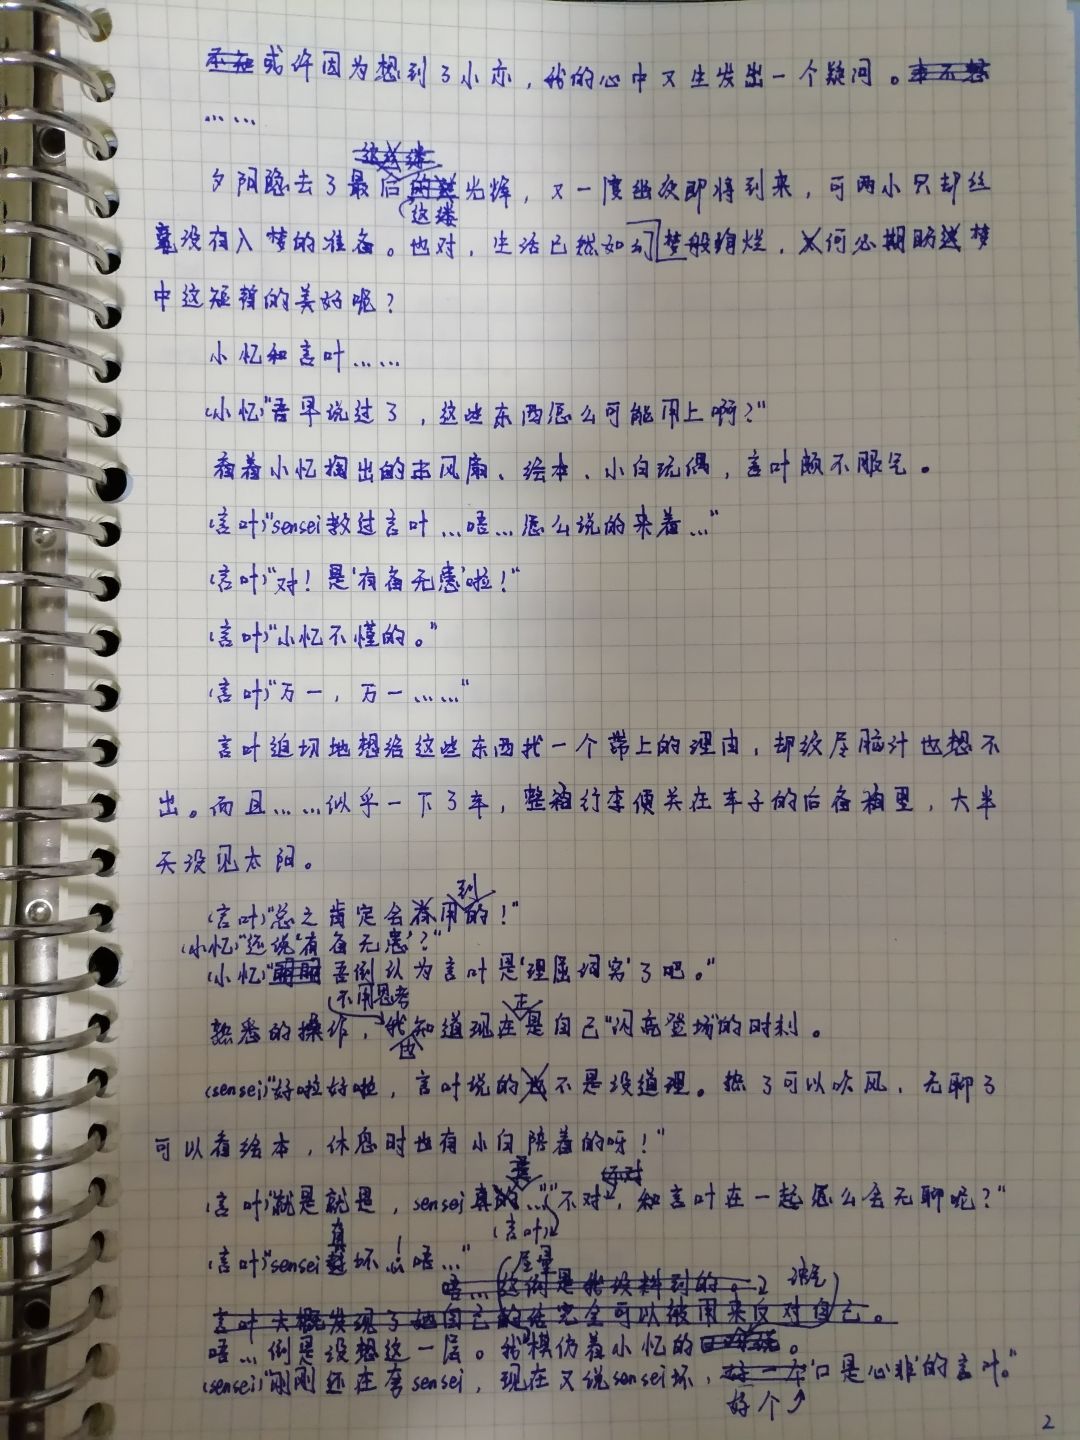 或许因为想到了小亦，我的心中又生发出一个疑问。
……
夕阳隐去了最后这缕光辉，又一度幽夜即将到来，可两小只却丝
毫没有入梦的准备。也对，生活已然如幻梦般绚烂，何必期盼梦
中这短暂的美好呢？
小忆和言叶……
(小忆)"吾早说过了，这些东西怎么可能用上啊？"
看着小忆掏出的风扇、绘本、小白玩偶，言叶颇不服气。
(言叶)"sensei教过言叶…唔…怎么说的来着…"
(言叶)"对！是'有备无患'啦！"
(言叶)"小忆不懂的。"
(言叶)"万一，万一……"
言叶迫切地想给这些东西找一个带上的理由，却绞尽脑汁也想不
出。而且……似乎一下了车，整箱行李便关在车子的后备箱里，大半
天没见太阳。
(言叶)"总之肯定会用到的！"
(小忆)"还说'有备无患'？"
(小忆)"吾倒认为言叶是'理屈词穷'了吧。"
熟悉的操作，不用思考我也知道现在正是自己"闪亮登场"的时刻。
(sensei)"好啦好啦，言叶说的不是没道理。热了可以吹风，无聊了
可以看绘本，休息时也有小白陪着的呀！"
(言叶)"就是就是，sensei真的…"
(言叶)"不对，和言叶在一起怎么会无聊呢？"
(言叶)"sensei真坏！唔…"
唔…倒是没想这一层。我模仿着小忆的语气。
(sensei)"刚刚还在夸sensei，现在又说sensei坏，好个'口是心非'的言叶。"
2